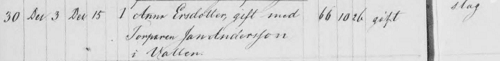 30 Dec 3 Dec 15 1 Anna Ersdotter, gift med 66 10 26 gift slag
Torparen Jan Andersson
i Vallen.